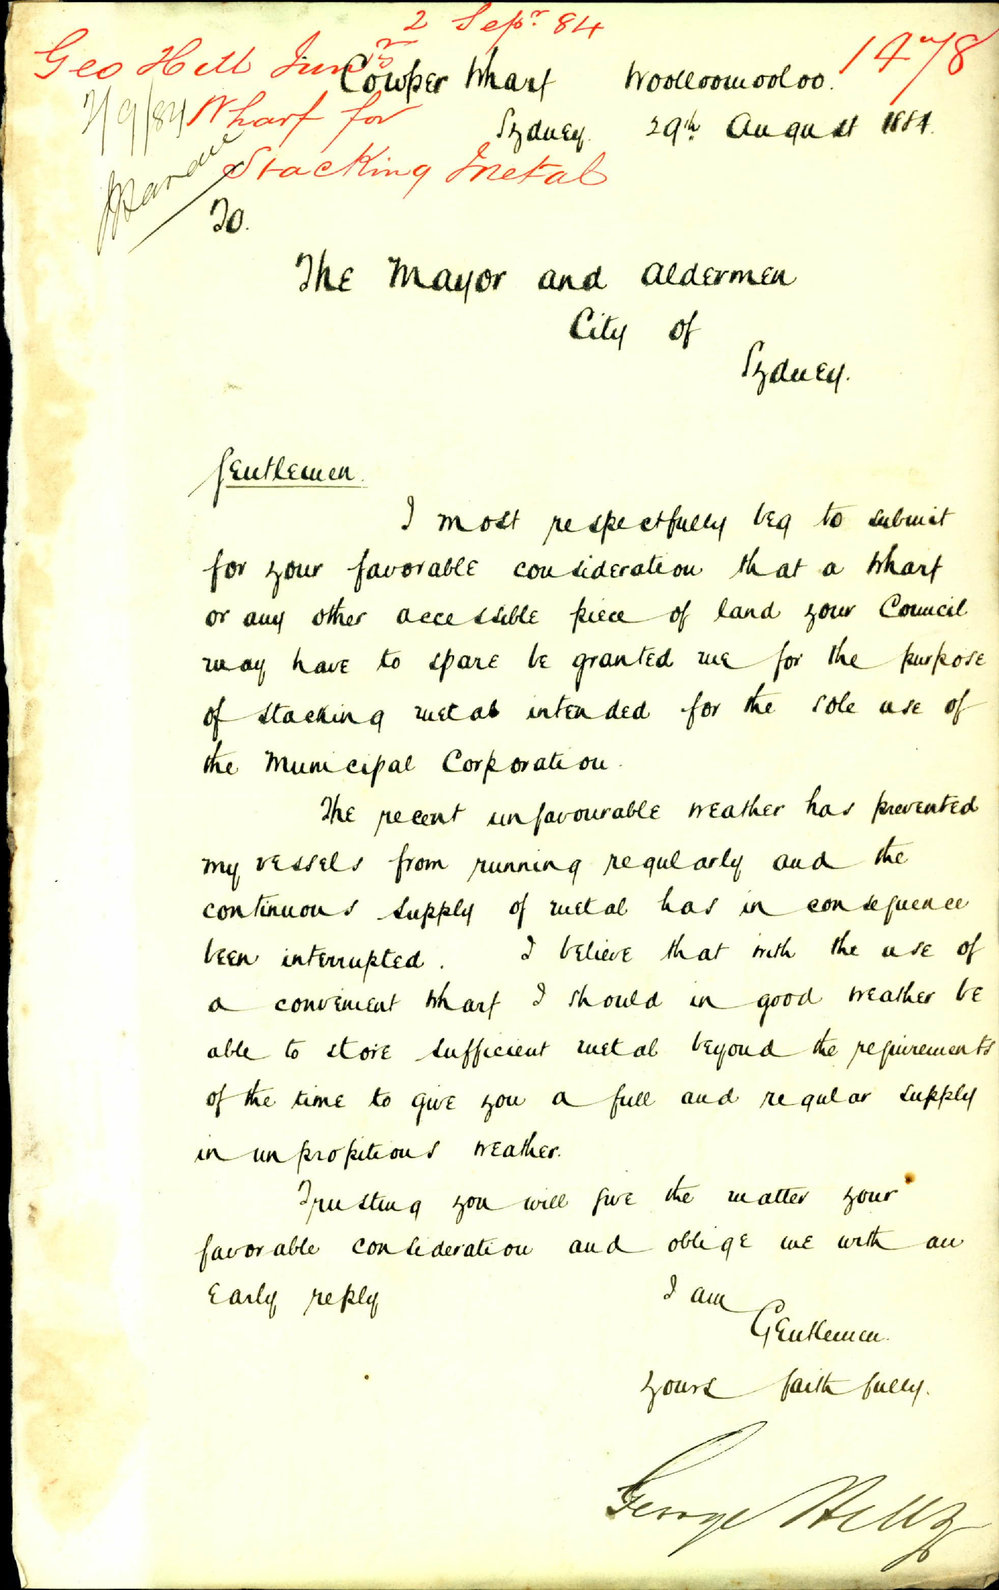 2 Sepr. 84
Geo Hill Junr
1478
Cowper Wharf Woolloomooloo.
2/9/84 Wharf for
Sydney. 29th August 1884.
Stacking Metal
To.
The Mayor and Aldermen
City of
Sydney.
Gentlemen.
I most respectfully beg to submit
for your favorable consideration that a Wharf
or any other accessible piece of land your Council
may have to spare be granted me for the purpose
of stacking metal intended for the sole use of
the Municipal Corporation.
The recent unfavourable weather has prevented
my vessels from running regularly and the
continuous supply of metal has in consequence
been interrupted. I believe that with the use of
a convenient Wharf I should in good weather be
able to store sufficient metal beyond the requirements
of the time to give you a full and regular supply
in unpropitious weather.
Trusting you will give the matter your
favorable consideration and oblige me with an
Early reply
I am
Gentlemen.
yours faithfully.
George Hill